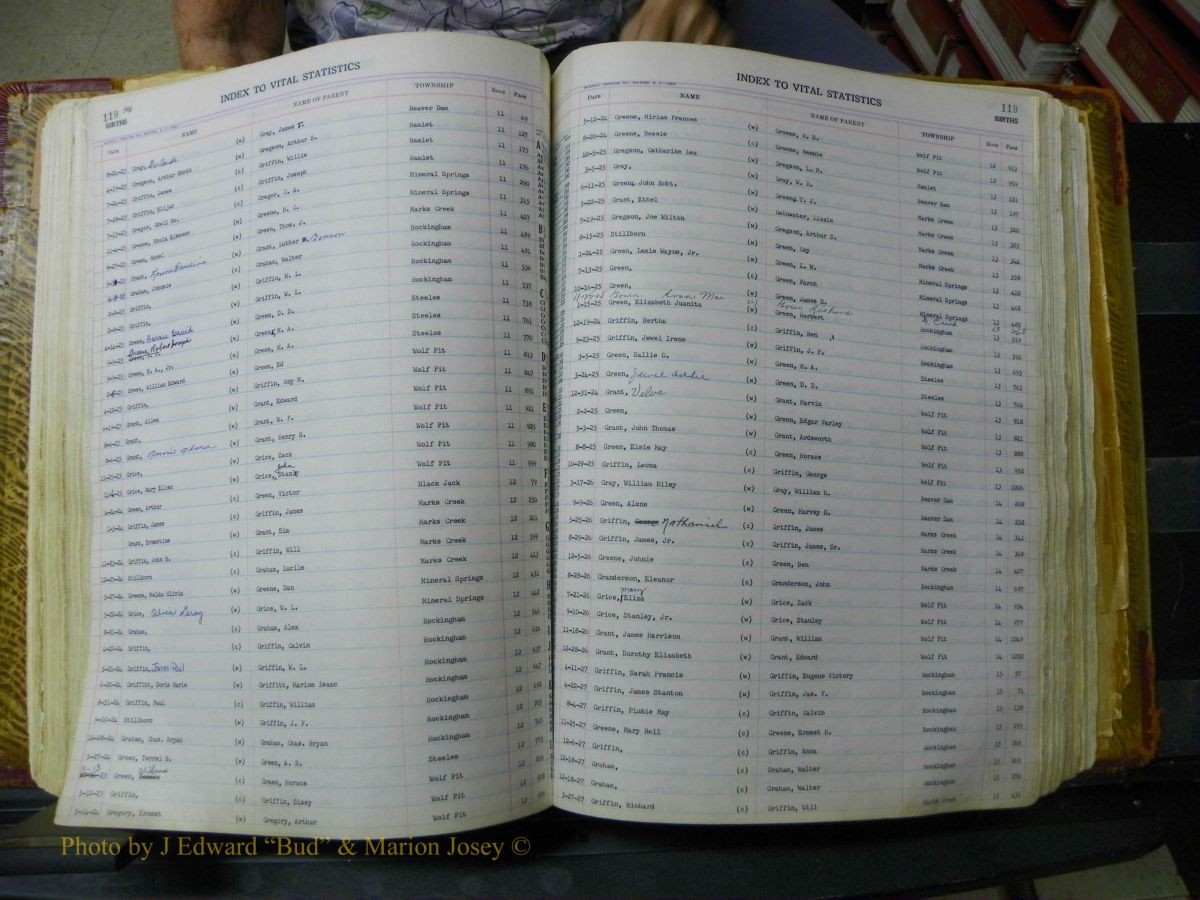 INDEX TO VITAL STATISTICS
119
BIRTHS
Date NAME NAME OF PARENT TOWNSHIP Book Page
8-21-23 Gray, Gertrude (w) Gray, James T. Beaver Dam 11 69
4-19-23 Gregson, Arthur Knott (w) Gregson, Arthur S. Hamlet 11 127
7-24-23 Griffin, James (c) Griffin, Willie Hamlet 11 175
7-28-23 Griffin, Elijah (c) Griffin, Joseph Hamlet 11 176
7-15-23 Gregor, Odell Mc. (w) Gregor, C. A. Mineral Springs 11 290
Greene, Eula Eleanor (w) Greene, B. G. Mineral Springs 11 315
8-27-23 Green, Hazel (w) Green, Thos. J. Marks Creek 11 407
Grant, Pauline (w) Grant, Luther Benson Rockingham 11 489
Graham, Johnnie (c) Graham, Walter Rockingham 11 491
Griffin, (w) Griffin, W. L. Rockingham 11 536
Griffin, (w) Griffin, W. L. Rockingham 11 537
4-14-23 Green, Bernie David (w) Green, D. D. Steeles 11 738
Greene, Robert Joseph (w) Green, H. A. Steeles 11 761
Green, H. A., Jr. (w) Green, H. A. Steeles 11 770
Green, William Edward (w) Green, Ed Wolf Pit 11 813
4-12-23 Griffin, (w) Griffin, Roy M. Wolf Pit 11 847
6-19-23 Grant, Allen (w) Grant, Edward Wolf Pit 11 891
Grant, (w) Grant, W. P. Wolf Pit 11 921
Grant, (w) Grant, Henry B. Wolf Pit 11 985
Grice, (w) Grice, Zack Wolf Pit 11 988
Grice, Mary Ellen (w) Grice, John Stanly Wolf Pit 11 999
Green, Arthur (c) Green, Victor Black Jack 12 79
1-3-24 Griffin, James (c) Griffin, James Marks Creek 12 254
Grant, Ernestine (w) Grant, Sim Marks Creek 12 261
Griffin, John B. (c) Griffin, Will Marks Creek 12 399
Stillborn (c) Graham, Lucile Marks Creek 12 413
3-27-24 Greene, Helda Olivia (w) Greene, Dan Mineral Springs 12 431
Grice, Alvin Leroy (w) Grice, W. L. Mineral Springs 12 442
Graham, (c) Graham, Alex Rockingham 12 546
Griffin, (c) Griffin, Calvin Rockingham 12 614
5-21-24 Griffin, James Paul (w) Griffin, W. L. Rockingham 12 637
6-20-24 Griffith, Doris Marie (w) Griffith, Marion Isaac Rockingham 12 647
8-31-24 Griffin, Paul (c) Griffin, William Rockingham 12 692
9-20-24 Stillborn (w) Griffin, J. P. Rockingham 12 705
12-28-24 Graham, Chas. Bryan (w) Graham, Chas. Bryan Rockingham 12 745
Green, Terrel S. (w) Green, A. B. Steeles 12 773
Green, Wilma (c) Green, Horace Wolf Pit 12
Griffin, (c) Griffin, Sissy Wolf Pit 12
Gregory, Ernest (w) Gregory, Arthur Wolf Pit 12
INDEX TO VITAL STATISTICS
119
BIRTHS
Date NAME NAME OF PARENT TOWNSHIP Book Page
5-12-24 Greene, Miriam Frances (w) Greene, H. E. Wolf Pit 12 913
8-20-24 Greene, Bessie (c) Greene, Bennie Wolf Pit 12 959
10-5-25 Gregson, Catharine Lea (w) Gregson, L. H. Hamlet 13 131
3-5-25 Gray, (w) Gray, W. R. Beaver Dam 13 197
6-11-25 Green, John Robt. (w) Green, T. J. Marks Creek 13 320
2-21-25 Grant, Ethel (w) Rainwater, Lizzie Marks Creek 13 325
7-19-25 Gregson, Joe Wilton (w) Gregson, Arthur S. Marks Creek 13 344
8-15-25 Stillborn (w) Green, Coy Marks Creek 13 358
1-24-25 Green, Lexie Wayne, Jr. (w) Green, L. W. Mineral Springs 13 418
7-13-25 Green, (c) Green, Parch Mineral Springs 13 462
10-18-25 Green, (w) Green, James D. Mineral Springs 13 485
11-25-25 Green Rosa Mae Green Richard
1-15-25 Green, Elizabeth Juanita (w) Green, Herbert Rockingham 13 519
12-19-24 Griffin, Bertha (c) Griffin, Ben Rockingham 13 591
9-23-25 Griffin, Jewel Irene (w) Griffin, J. P. Rockingham 13 693
3-5-25 Green, Sallie O. (w) Green, H. A. Steeles 13 761
3-24-25 Green, Jewel Addie (w) Green, D. D. Steeles 13 766
12-31-24 Grant, Velva (w) Grant, Marvin Wolf Pit 13 816
2-2-25 Green, (w) Green, Edgar Varley Wolf Pit 13 821
5-3-25 Grant, John Thomas (w) Grant, Ardsworth Wolf Pit 13 888
8-8-25 Green, Elsie May (c) Green, Horace Wolf Pit 13 952
10-29-25 Griffin, Leona (c) Griffin, George Wolf Pit 13 1006
3-17-26 Gray, William Riley (w) Gray, William R. Beaver Dam 14 208
9-9-26 Green, Alene (w) Green, Harvey R. Beaver Dam 14 252
5-25-26 Griffin, George Nathaniel (c) Griffin, James Marks Creek 14 341
8-29-26 Griffin, James, Jr. (c) Griffin, James, Sr. Marks Creek 14 368
12-5-26 Greene, Johnie (c) Green, Ben Marks Creek 14 407
8-28-26 Granderson, Eleanor (c) Granderson, John Rockingham 14 697
7-21-26 Grice, Mary Eliza (w) Grice, Zack Wolf Pit 14 934
9-10-26 Grice, Stanley, Jr. (w) Grice, Stanley Wolf Pit 14 977
11-18-26 Grant, James Harrison (w) Grant, William Wolf Pit 14 1049
12-28-26 Grant, Dorothy Elizabeth (w) Grant, Edward Wolf Pit 14 1052
4-11-27 Griffin, Sarah Francis (w) Griffin, Eugene Victory Rockingham 15 57
4-22-27 Griffin, James Stanton (w) Griffin, Jas. F. Rockingham 15 71
8-4-27 Griffin, Pinkie May (c) Griffin, Calvin Rockingham 15 138
11-25-27 Greene, Mary Bell (c) Greene, Ernest H. Rockingham 15 193
12-6-27 Griffin, (c) Griffin, Anna Rockingham 15
12-18-27 Graham, (c) Graham, Walter Rockingham 15
12-18-27 Graham, (c) Graham, Walter Rockingham 15
3-27-27 Griffin, Richard (c) Griffin, Will Marks Creek 15 432
Photo by J Edward “Bud” & Marion Josey ©